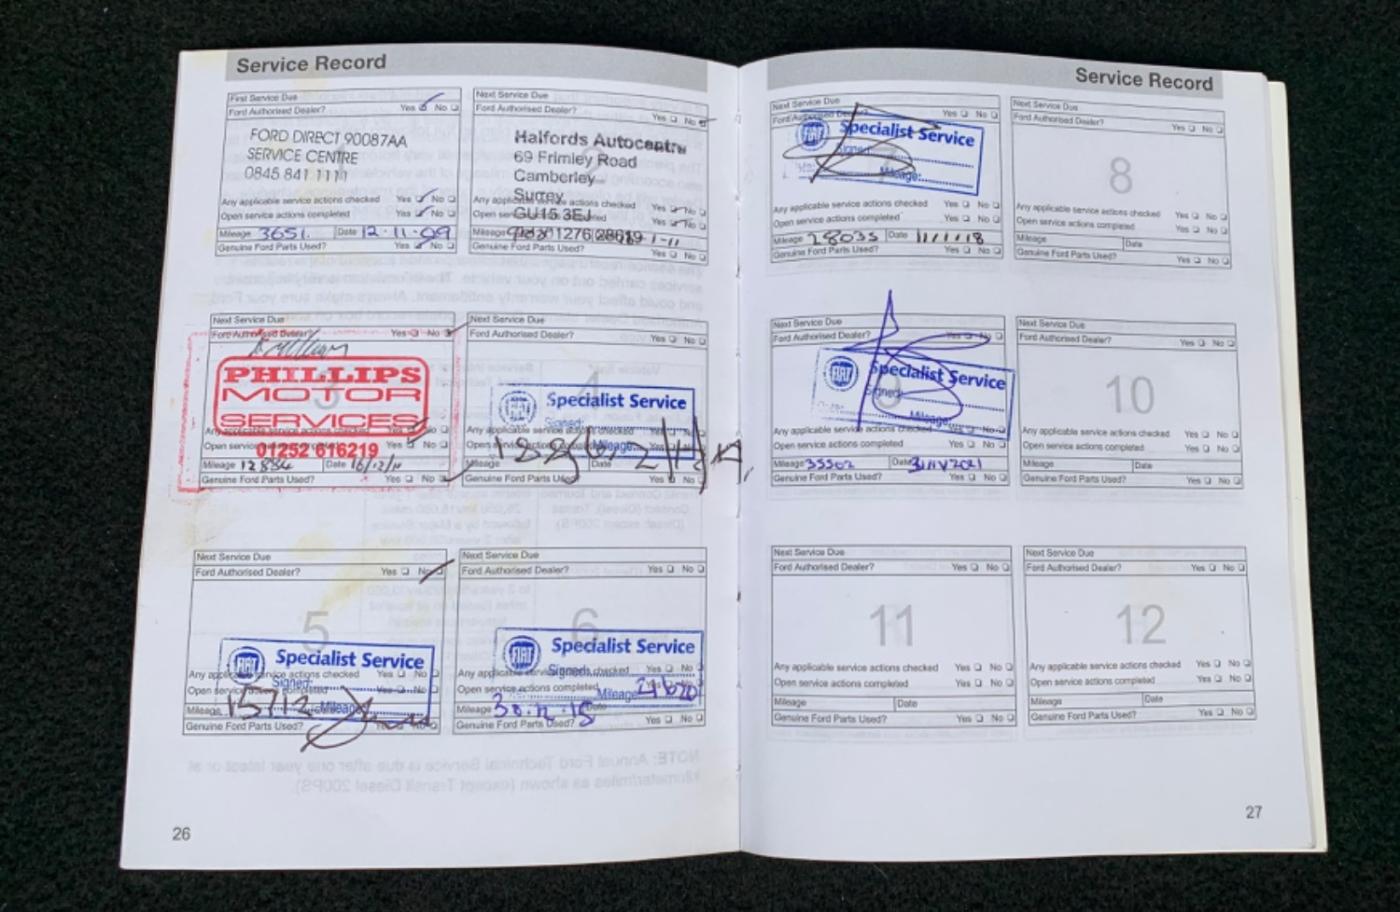 Service Record
First Service Due
Ford Authorised Dealer? Yes No
FORD DIRECT 90087AA
SERVICE CENTRE
0845 841 1111
Any applicable service actions checked Yes No
Open service actions completed Yes No
Mileage 3651. Date 12.11.09
Genuine Ford Parts Used? Yes No
Next Service Due
Ford Authorised Dealer? Yes No
Halfords Autocentre
69 Frimley Road
Camberley
Surrey
GU15 3EJ
01276 28619
Yes No
Next Service Due
Ford Authorised Dealer? Yes No
PHILLIPS
MOTOR
SERVICES
3
Any applicable service actions checked
01252 616219
Open Yes No
Mileage 12884 Date 16/12/11
Genuine Ford Parts Used? Yes No
Next Service Due
Ford Authorised Dealer? Yes No
4
FIAT Specialist Service
Signed:
Mileage:
Mileage Date
Genuine Ford Parts Used? Yes No
Next Service Due
Ford Authorised Dealer? Yes No
5
FIAT Specialist Service
Any applicable service actions checked Yes No
Signed:
Open service actions completed Yes No
Mileage 15712 Mileage:
Genuine Ford Parts Used? Yes No
Next Service Due
Ford Authorised Dealer? Yes No
6
FIAT Specialist Service
Any applicable Signed: checked Yes No
Open service actions completed Mileage: 21670
Mileage 30.12.15 Date
Genuine Ford Parts Used? Yes No
26
Service Record
Next Service Due
Ford Authorised Dealer?
FIAT Specialist Service
Signed:
7
Mileage:
Any applicable service actions checked Yes No
Open service actions completed Yes No
Mileage 28035 Date 11/1/18
Genuine Ford Parts Used? Yes No
Next Service Due
Ford Authorised Dealer? Yes No
8
Any applicable service actions checked Yes No
Open service actions completed Yes No
Mileage Date
Genuine Ford Parts Used? Yes No
Next Service Due
Ford Authorised Dealer? Yes No
9
FIAT Specialist Service
Signed:
Mileage:
Any applicable service actions checked Yes No
Open service actions completed Yes No
Mileage 35502 Date
Genuine Ford Parts Used? Yes No
Next Service Due
Ford Authorised Dealer? Yes No
10
Any applicable service actions checked Yes No
Open service actions completed Yes No
Mileage Date
Genuine Ford Parts Used? Yes No
Next Service Due
Ford Authorised Dealer? Yes No
11
Any applicable service actions checked Yes No
Open service actions completed Yes No
Mileage Date
Genuine Ford Parts Used? Yes No
Next Service Due
Ford Authorised Dealer? Yes No
12
Any applicable service actions checked Yes No
Open service actions completed Yes No
Mileage Date
Genuine Ford Parts Used? Yes No
27